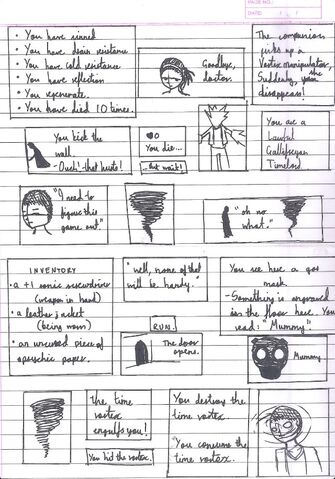 PAGE NO.:
DATE: / /
• You have sinned
• You have drain resistance
• You have cold resistance
• You have reflection
• You regenerate.
• You have died 10 times.
Goodbye,
doctor.
The companion
picks up a
Vortex manipulator,
Suddenly, she
disappears!
You kick the
wall.
-Ouch!-that hurts!
You die...
...But wait!
You are a
Lawful
Gallifreyan
Timelord.
"I need to
figure this
game out."
"oh no
what."
INVENTORY
• a +1 sonic screwdriver
(weapon in hand)
• a leather jacket
(being worn)
• an uncursed piece of
psychic paper.
"well, none of that
will be handy."
RUN.
The door
opens.
You see here a gas
mask.
-Something is engraved
in the floor here. You
read: "Mummy".
Mummy.
the time
vortex
engulfs you!
You hit the vortex.
You destroy the
time vortex.
You consume the
time vortex.